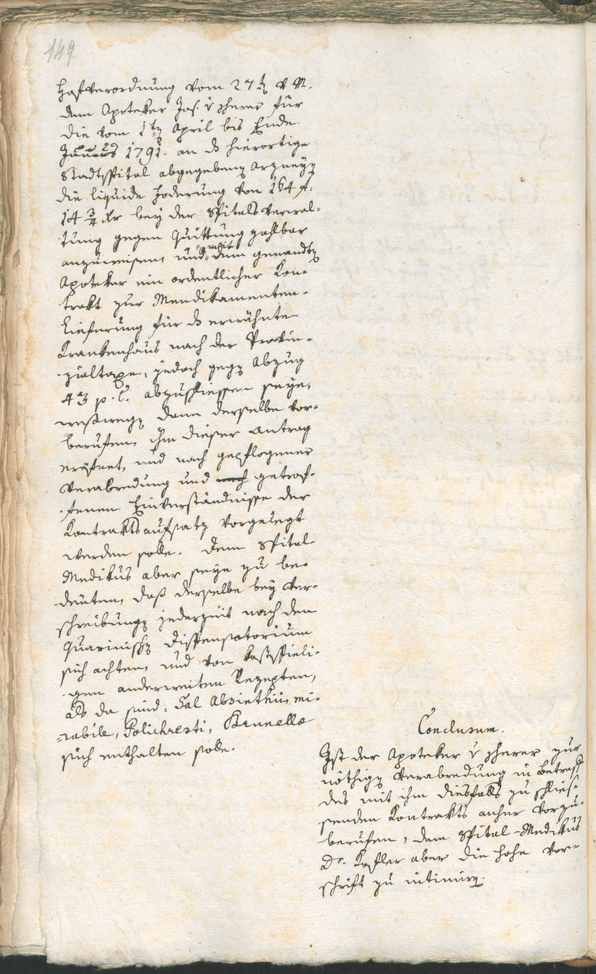 149
Hofverordnung vom 27t v M.
dem Apoteker Jos. v für
die vom 1tn April bis Ende
1791. an ds hierortige
Stadtspital abgegebene Arzneyn
die liquide Foderung von 164 f.
14 2/4 kr bey der Spitalsverwal-
tung gegen Quittung zahlbar
anzuweisen, und mit dem genandtn
Apoteker ein ordentlicher Kon-
trakt zur Medikamenten-
Lieferung für ds erwähnte
Krankenhaus nach der Provin-
zialtaxe, jedoch gegn Abzug
43 p. C. abzuschliessen seye,
weßwegn dann derselbe vor-
berufen, ihm dieser Antrag
eröfnet, und nach gepflogener
Verabredung und getrof-
fenem Einverständnisse der
Kontraktsaufsatz vorgelegt
werden solle. Dem Spital-
Medikus aber seye zu be-
deuten, daß derselbe bey Ver-
schreibungn jederzeit nach dem
Quarinischn Dispensatorium
sich achten, und von kostspieli-
gen anderweiten Rezepten,
als da sind: Sal Absinthii, mi-
rabile, Polichresti, Brunelle
sich enthalten solle.
Conclusum.
Ist der Apoteker v zur
nöthign Verabredung in Betreff
des mit ihm diesfalls zu schlies-
senden Kontrakts anher vorzu-
berufen, dem Spital-Medikus
Dr. aber die hohe Vor-
schrift zu intimirn.